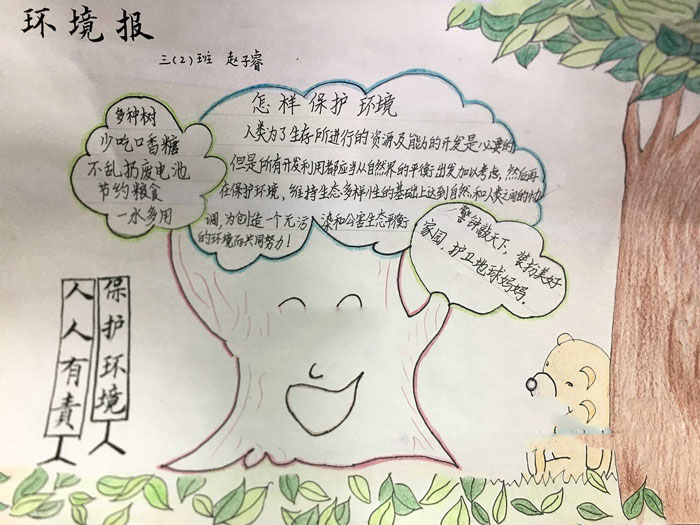 环境报
三(2)班 赵子睿
怎样保护环境
人类为了生存所进行的资源及能的开发是必要的
但是所有开发利用都应当从自然界的平衡出发加以考虑,然后再
在保护环境,维持生态多样性的基础上达到自然和人类之间的协
调,为创造一个无污染和公害生态平衡
的环境而共同努力!
多种树
少吃口香糖
不乱扔废电池
节约粮食
一水多用
警钟敲天下,装扮美好
家园,护卫地球妈妈.
保护环境
人人有责